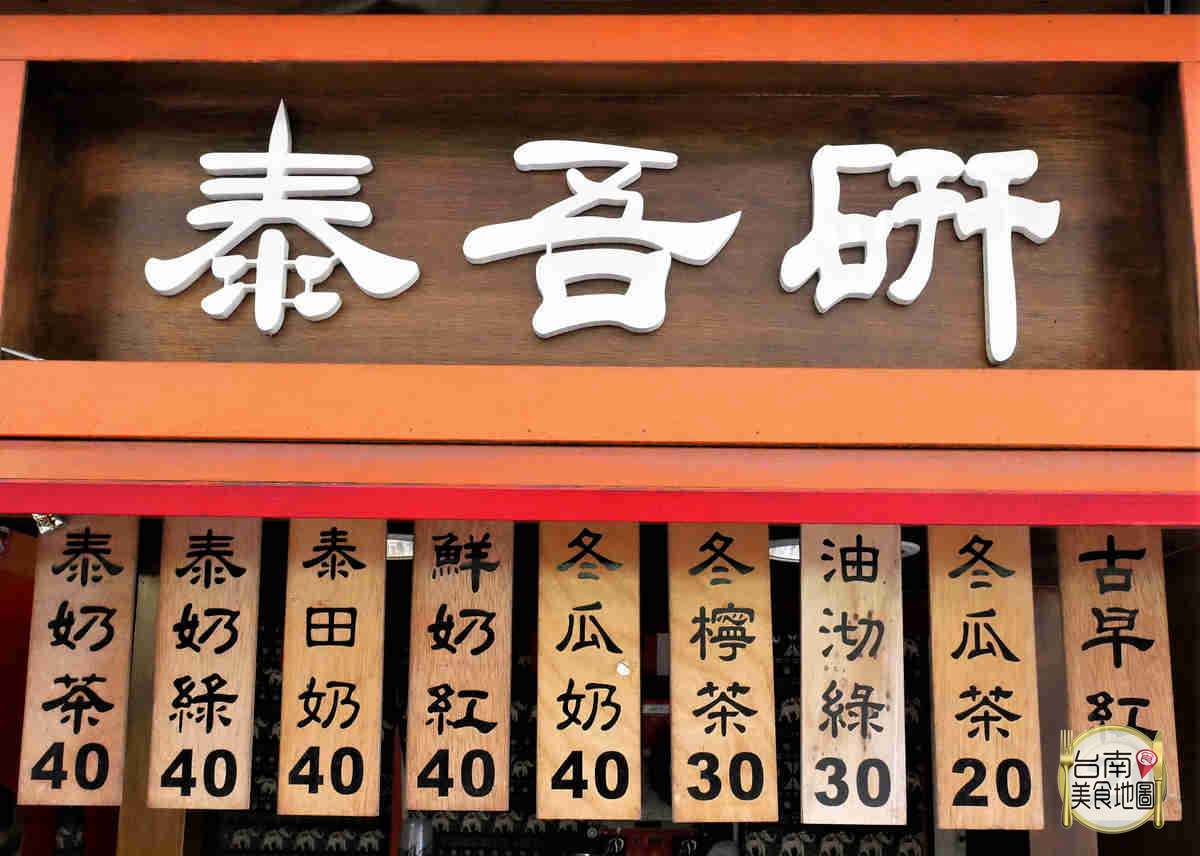 泰吾研
泰奶茶40
泰奶綠40
泰田奶40
鮮奶紅40
冬瓜奶40
冬檸茶30
油沏綠30
冬瓜茶20
古早紅
台南
食
美食地圖